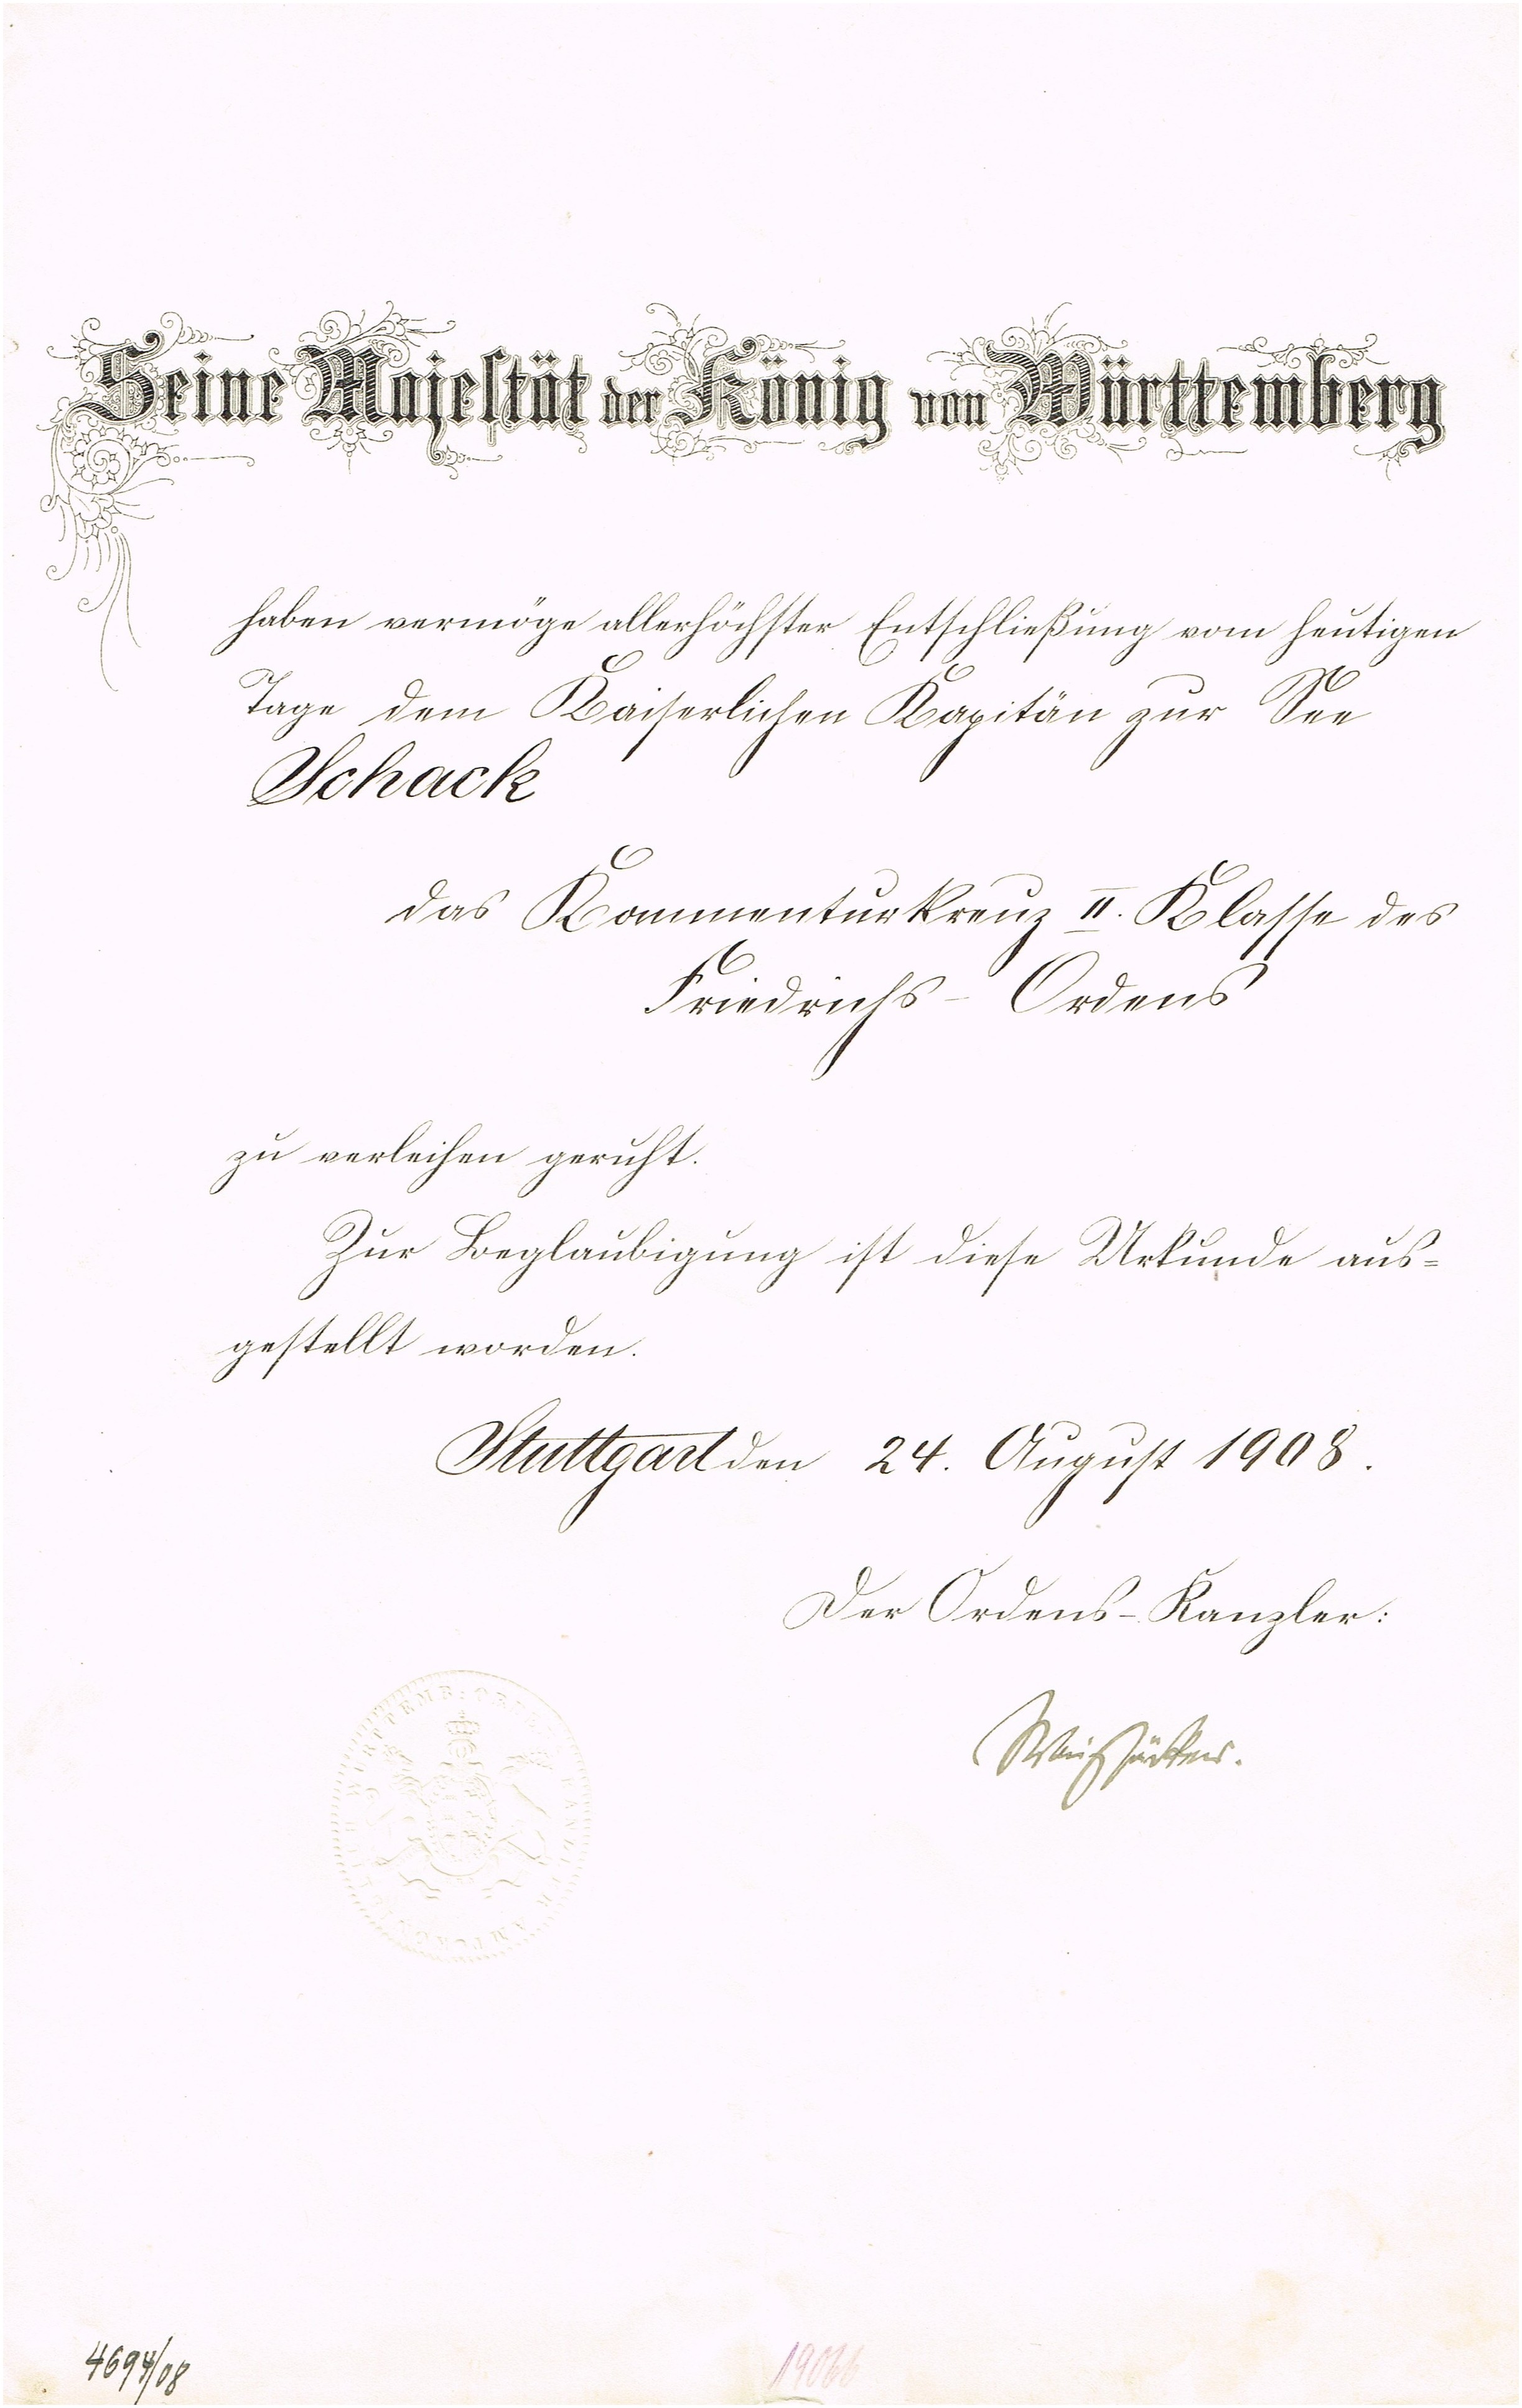 Seine Majestät der König von Württemberg
haben vermöge allerhöchster Entschließung vom heutigen
Tage dem Kaiserlichen Kapitän zur See
Schack
das Kommenturkreuz II. Klasse des
Friedrichs-Ordens
zu verleihen geruht.
Zur Beglaubigung ist diese Urkunde aus=
gestellt worden.
Stuttgart den 24. August 1908.
Der Ordens-Kanzler:
Weizsäcker.
4694/08